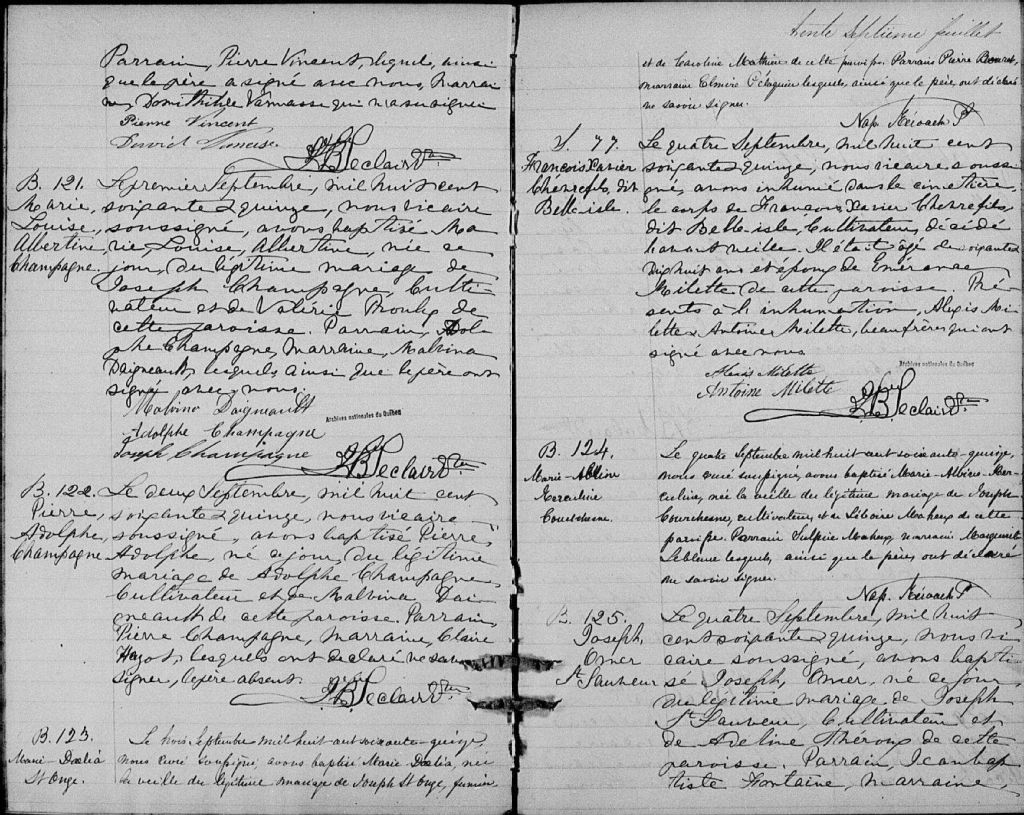 Parrain, Pierre Vincent, lequel, ainsi
que le père, a signé avec nous, Marrai
ne, Domithilde Vanasse qui n'a su signer
Pierre Vincent
David
J.B. Leclair Vre
B. 121.
Marie,
Louise,
Albertine
Champagne.
Le premier Septembre, mil huit cent
soixante & quinze, nous vicaire
soussigné, avons baptisé Ma
rie, Louise, Albertine, née ce
jour, du légitime mariage de
Joseph Champagne, Culti
vateur et de Valérie Proulx de
cette paroisse. Parrain, Adol
phe Champagne, Marraine, Malvina
Daigneault, lesquels ainsi que le père ont
signé avec nous.
Malvina Daigneault
Adolphe Champagne
Joseph Champagne
Archives nationales du Québec
J.B. Leclair Vre
B. 122.
Pierre,
Adolphe,
Champagne
Le deux Septembre, mil huit cent
soixante & quinze, nous vicaire
soussigné, avons baptisé Pierre,
Adolphe, né ce jour, du légitime
mariage de Adolphe Champagne,
Cultivateur et de Malvina Dai
gneault de cette paroisse. Parrain,
Pierre Champagne, Marraine, Claire
lesquels ont déclaré ne savoir
signer, le père absent.
J.B. Leclair Vre
B. 123.
Marie Doelia
St Onge.
Le trois Septembre mil huit cent soixante-quinze
nous curé soussigné, avons baptisé Marie-Doelia, née
la veille du légitime mariage de Joseph St Onge,
trente septième feuillet
et de Caroline Mathieu de cette paroisse. Parrain Pierre
marraine Elmire lesquels, ainsi que le père, ont déclaré
ne savoir signer.
Nap. Keroack Ptr
S. 77.
François Xavier
Chèvrefils, dit
Belle-isle.
Le quatre Septembre, mil huit cent
soixante & quinze, nous vicaire soussi
gné, avons inhumé dans le cimetière,
le corps de François Xavier Chèvrefils,
dit Belle-isle, Cultivateur, décédé
l'avant veille. Il était âgé de soixante &
dix huit ans et époux de Emérance
Milette de cette paroisse. Pré
sents à l'inhumation, Alexis Mi
lette & Antoine Milette, beaufrères qui ont
signé avec nous
Alexis Milette
Antoine Milette
Archives nationales du Québec
J.B. Leclair Vre
B. 124.
Marie-Albina
Herculine
Courchesne.
Le quatre Septembre mil huit cent soixante-quinze,
nous curé soussigné, avons baptisé Marie-Albina-Her-
culine, née la veille du légitime mariage de Joseph
Courchesne, cultivateur, et de Maheux de cette
paroisse. Parrain Sulpice Maheux, marraine Marguerite
Leblanc lesquels, ainsi que le père, ont déclaré
ne savoir signer.
Nap. Keroack Ptr
B. 125.
Joseph,
Omer
St Sauveur
Le quatre Septembre, mil huit
cent soixante & quinze, nous vi
caire soussigné, avons bapti
sé Joseph, Omer, né ce jour,
du légitime mariage de Joseph
St Sauveur, Cultivateur et
de Adeline Théroux de cette
paroisse. Parrain, Jean bap
tiste Fontaine, Marraine,